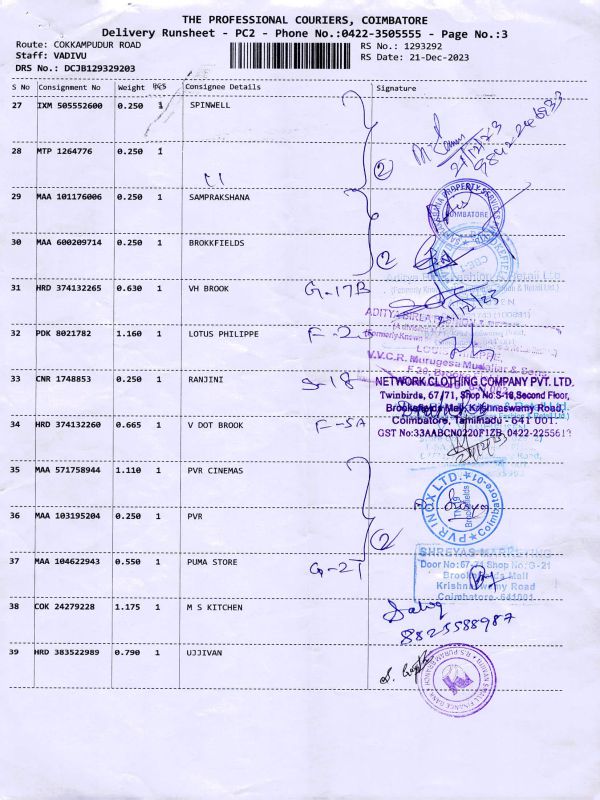 THE PROFESSIONAL COURIERS, COIMBATORE
Delivery Runsheet - PC2 - Phone No.:0422-3505555 - Page No.:3
Route: COKKAMPUDUR ROAD
Staff: VADIVU
DRS No.: DCJB129329203
RS No.: 1293292
RS Date: 21-Dec-2023
S No Consignment No Weight PCS Consignee Details Signature
27 IXM 505552600 0.250 1 SPINWELL
28 MTP 1264776 0.250 1
29 MAA 101176006 0.250 1 SAMPRAKSHANA
30 MAA 600209714 0.250 1 BROKKFIELDS
31 HRD 374132265 0.630 1 VH BROOK G-17B
32 PDK 8021782 1.160 1 LOTUS PHILIPPE
33 CNR 1748853 0.250 1 RANJINI
34 HRD 374132260 0.665 1 V DOT BROOK F-5A
35 MAA 571758944 1.110 1 PVR CINEMAS
36 MAA 103195204 0.250 1 PVR
37 MAA 104622943 0.550 1 PUMA STORE
38 COK 24279228 1.175 1 M S KITCHEN
39 HRD 383522989 0.790 1 UJJIVAN
2
2
2
21/12/23
COIMBATORE
V.V.C.R. Murugesa Mudaliar & Sons
NETWORK CLOTHING COMPANY PVT. LTD.
Twinbirds, 67/71, Shop No:S-18, Second Floor,
Brookefields Mall, Krishnaswamy Road,
Coimbatore, Tamilnadu - 641 001.
GST No:33AABCN0220F1ZB
PVR INOX LTD.
Brookefields
Coimbatore-01
Door No:67-71 Shop No: G-21
Brookefields Mall
Krishnaswamy Road
Coimbatore-641001
8825588987